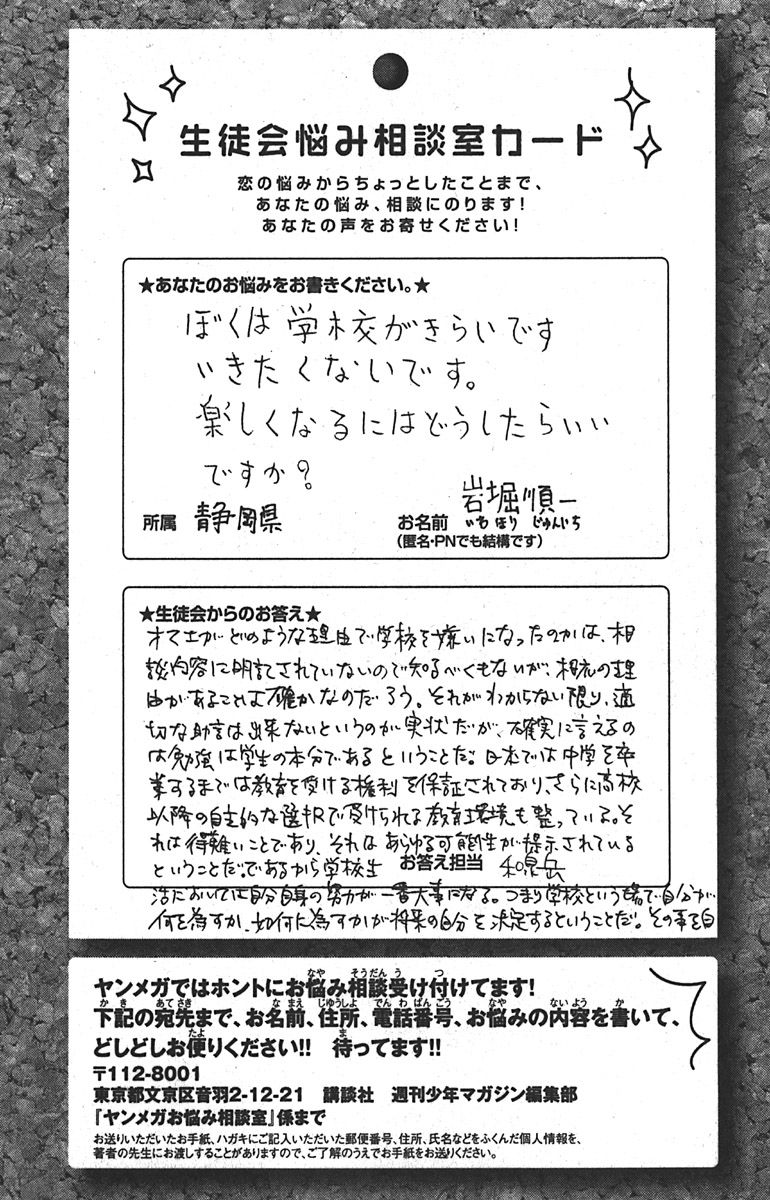 生徒会悩み相談室カード
恋の悩みからちょっとしたことまで、
あなたの悩み、相談にのります!
あなたの声をお寄せください!
★あなたのお悩みをお書きください。★
ぼくは学校がきらいです
いきたくないです。
楽しくなるにはどうしたらいい
ですか?
所属 静岡県
お名前 岩堀順一
いわほり じゅんいち
(匿名・PNでも結構です)
★生徒会からのお答え★
オマエがどのような理由で学校を嫌いになったのかは、相
談内容に明記されていないので知るべくもないが、相応の理
由があることは確かなのだろう。それがわからない限り、適
切な助言は出来ないというのが実状だが、確実に言えるの
は勉強は学生の本分であるということだ。日本では中学を卒
業するまでは教育を受ける権利を保証されており、さらに高校
以降の自主的な選択で受けられる教育環境も整っている。そ
れは得難いことであり、それはあらゆる可能性が提示されている
ということだ。であるから学校生
お答え担当 和泉岳
活においては自分自身の努力が一番大事になる。つまり学校という場で自分が
何を為すか、如何に為すかが将来の自分を決定するということだ。その事を自
ヤンメガではホントにお悩み相談受け付けてます!
なや そうだん う つ
下記の宛先まで、お名前、住所、電話番号、お悩みの内容を書いて、
かき あてさき なまえ じゅうしょ でんわばんごう なや ないよう か
どしどしお便りください!! 待ってます!!
たよ ま
〒112-8001
東京都文京区音羽2-12-21 講談社 週刊少年マガジン編集部
『ヤンメガお悩み相談室』係まで
お送りいただいたお手紙、ハガキにご記入いただいた郵便番号、住所、氏名などをふくんだ個人情報を、
著者の先生にお渡しすることがありますので、ご了解のうえでお手紙をお送りください。